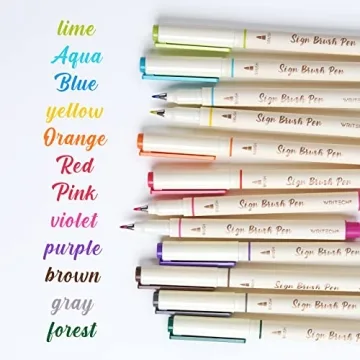 lime
Aqua
Blue
yellow
Orange
Red
Pink
violet
purple
brown
gray
forest
Sign Brush Pen
Sign Brush Pen
Sign Brush Pen WRITECH
Sign Brush Pen
Sign Brush Pen
Sign Brush Pen
Sign Brush Pen WRITECH
Sign Brush Pen
Sign Brush Pen
Sign Brush Pen
Sign Brush Pen
Sign Brush Pen